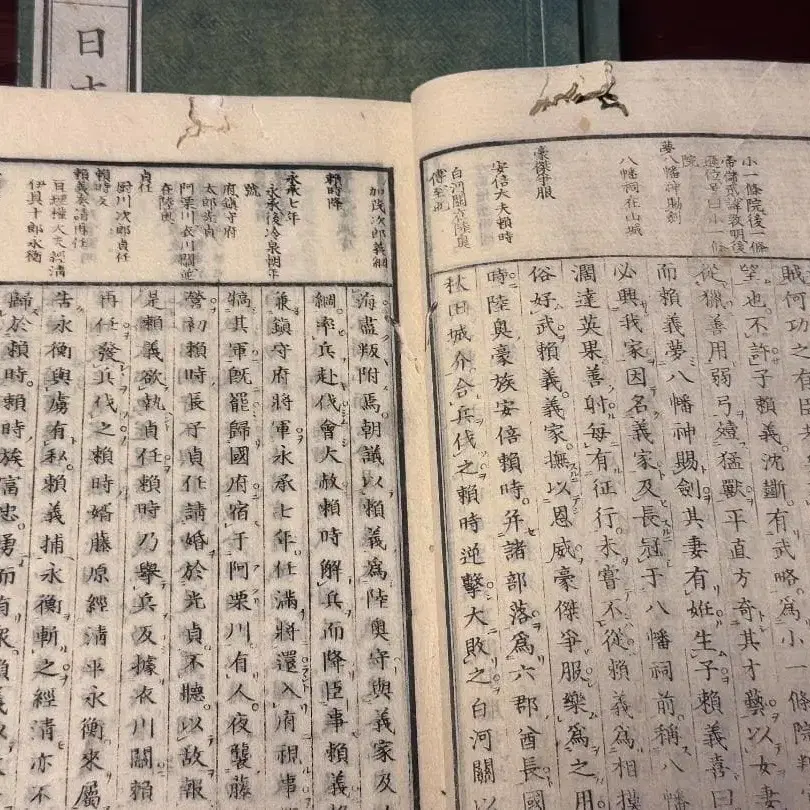 日
小一條院後一條
帝儲戒諱敦明後
遜位号曰小一條
院
夢八幡神賜劍
八幡祠在山城
豪傑爭服
安信大夫賴時
白河關在陸奥
賊何功之有臣
望也。不許。子賴義。沈斷有武略。爲小一條院判
從獵。善用弱弓殪猛獸。平直方奇其才藝。以女妻
而賴義夢八幡神賜劍。其妻有姙。生子。賴義喜曰
必興我家。因名義家。及長。冠于八幡祠前。稱八
濶達英果。善射。每有征行。未嘗不從。賴義爲相摸
俗好武。賴義義家撫以恩威。豪傑爭服。樂爲之用
時陸奥豪族安倍賴時。并諸部落。爲六郡酋長。國
秋田城介合兵伐之。賴時逆擊。大敗之。白河關以
加茂次郎義綱
賴時降
永承七年
永承後冷泉帝年
號
府鎭守府
太郎光貞
阿栗川衣川關並
在陸奥
貞任
厨川次郎貞任
賴時反
賴義奏請再任
亘理權大夫經清
伊具十郎永衡
海盡叛附焉。朝議以賴義爲陸奥守。與義家及
綱率兵赴伐。會大赦。賴時解兵而降。臣事賴義
兼鎭守府將軍。永承七年。任滿將還。入府視事
犒其軍。既罷。歸國府。宿于阿栗川。有人夜襲藤
營。初賴時長子貞任。請婚於光貞。不聽。以故報
是賴義欲執貞任。賴時乃擧兵反。據衣川關。賴
再任。發兵伐之。賴時婿藤原經清。平永衡來屬
告永衡與虜有私。賴義捕永衡斬之。經清亦不
歸於賴時。賴時族富忠。勇而有衆。賴義